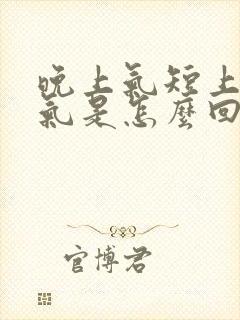 晚上氣短上
氣是怎麼回
官博君